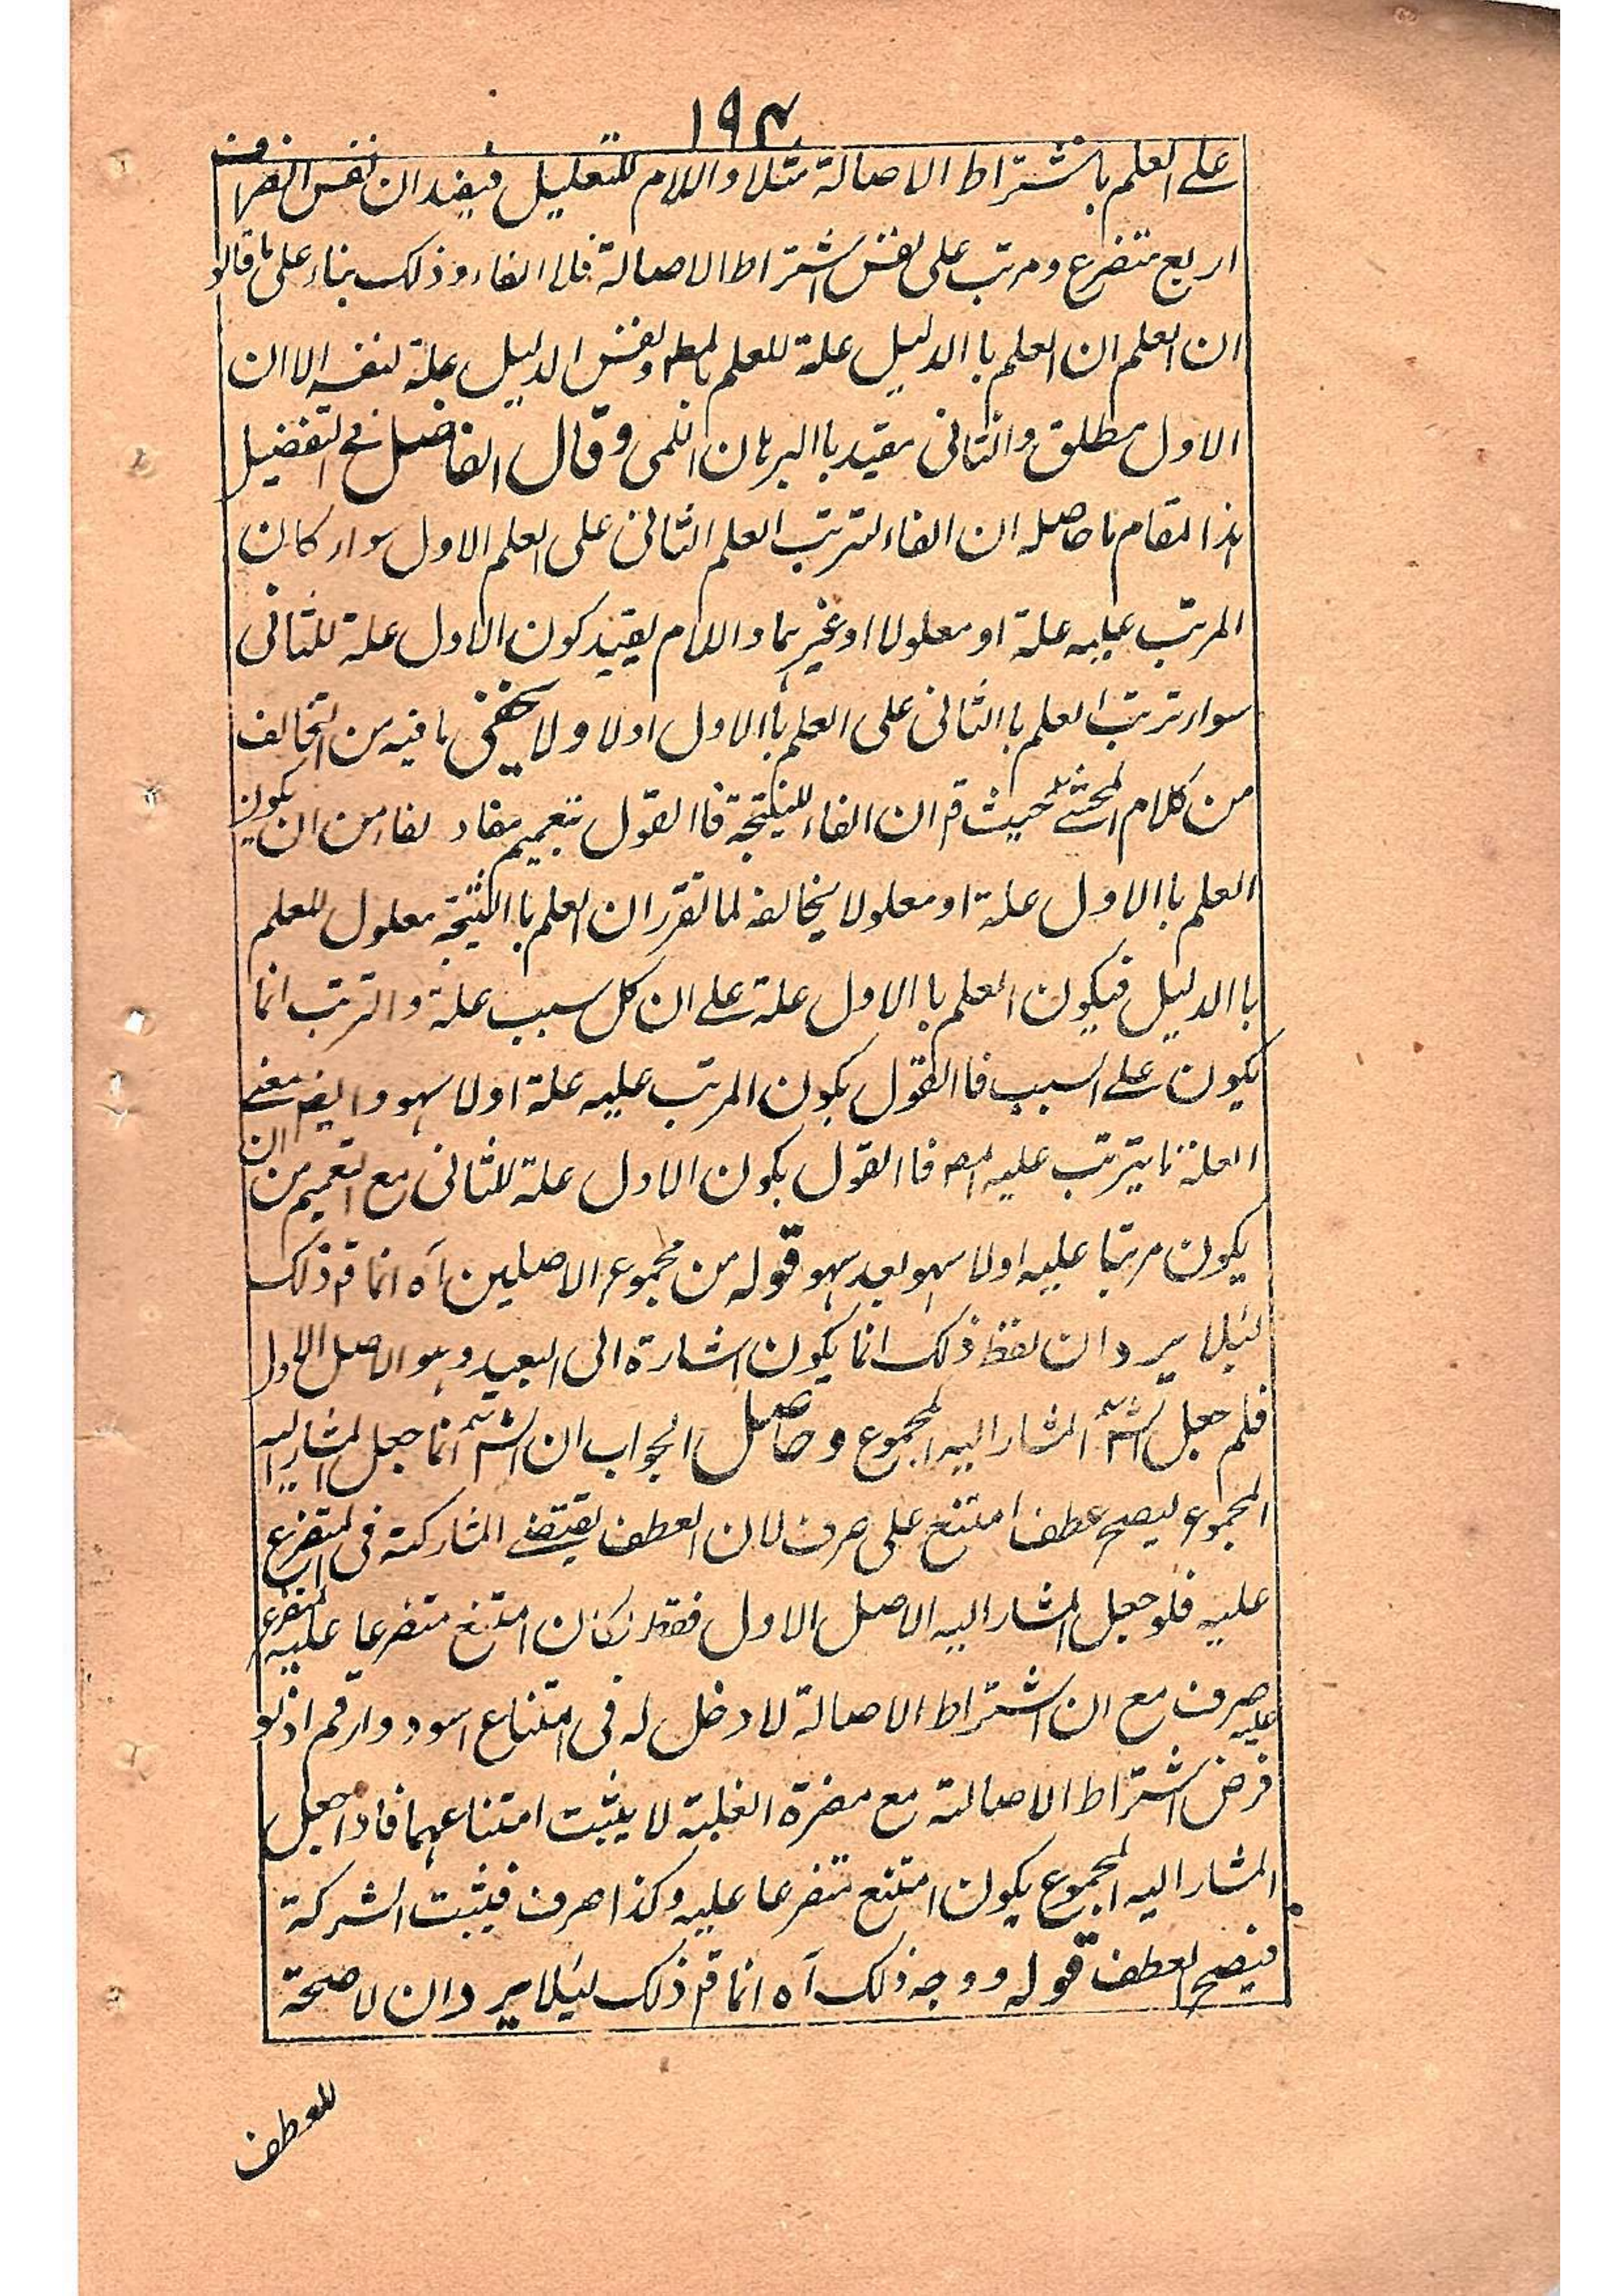 ١٩٤
على العلم باشتراط الاصالة مثلا واللام للتعليل فيفيد ان نفس انصراف
اربع متفرع ومرتب على نفس اشتراط الاصالة فالفاء وذلك بناء على ما قالو
ان العلم ان العلم با الدليل علة للعلم بالمط ونفس الدليل علة لنفسه الا ان
الاول مطلق والثانى مقيد با البرهان اللمى وقال الفاضل فى التفضيل
هذا المقام ما حاصله ان الفاء لترتب العلم الثانى على العلم الاول سواء كان
المرتب عليه علة او معلولا او غيرهما واللام يفيد كون الاول علة للثانى
سواء ترتب العلم با الثانى على العلم با الاول اولا ولا يخفى ما فيه من التخالف
من كلام المحشى حيث قم ان الفاء للنتيجة فا القول بتعميم مفاد لفاء من ان يكون
العلم با الاول علة او معلولا يخالفه لما تقرر ان العلم با النتيجة معلول للعلم
با الدليل فيكون العلم با الاول علة على ان كل سبب علة والترتب انما
يكون على السبب فا القول بكون المرتب عليه علة اولا سهو وايضم معنى
العلة ما يترتب عليه المعه فا القول بكون الاول علة للثانى مع التعميم من ان
يكون مرتبا عليه اولا سهو بعد سهو قوله من مجموع الاصلين آه انما قم ذلك
لئلا يرد ان لفظ ذلك انما يكون اشارة الى البعيد وهو الاصل الاول
فلم جعل الشم المشار اليه المجموع وحاصل الجواب ان الشم انما جعل المشار اليه
المجموع ليصح عطف امتنع على صرف لان العطف يقتضى المشاركة فى المتفرع
عليه فلو جعل المشار اليه الاصل الاول فقط لكان امتنع متفرعا عليه المتفرع
عليه صرف مع ان اشتراط الاصالة لا دخل له فى امتناع اسود وارقم اذ لو
فرض اشتراط الاصالة مع مضرة الغلبة لا يثبت امتناعهما فاذا جعل
المشار اليه المجموع يكون امتنع متفرعا عليه وكذا صرف فيثبت الشركة
فيصح العطف قوله ووجه ذلك آه انما قم ذلك لئلا يرد ان لا صحة
للعطف